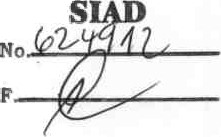 SIAD
No. 624912
F.